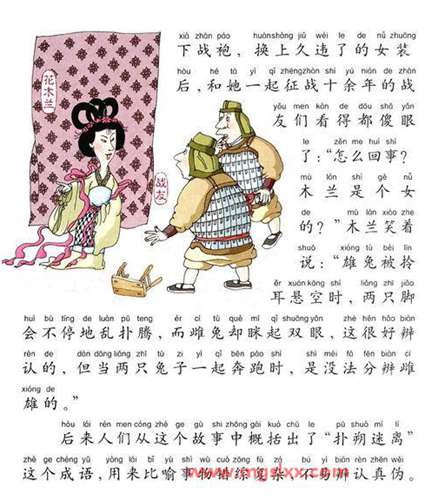 xià zhàn páo huànshàng jiǔ wéi le de nǚ zhuāng
下战袍，换上久违了的女装
hòu hé tā yì qǐ zhēngzhàn shí yú nián de zhàn
后，和她一起征战十余年的战
yǒu men kàn de dōu shǎ yǎn
友们看得都傻眼
le zěn me huí shì
了：“怎么回事？
mù lán shì gè nǚ
木兰是个女
de mù lán xiào zhe
的？”木兰笑着
shuō xióng tù bèi līn
说：“雄兔被拎
ěr xuán kōng shí liǎng zhī jiǎo
耳悬空时，两只脚
huì bù tíng de luàn pū teng ér cí tù què mī qǐ shuāng yǎn zhè hěn hǎo biàn
会不停地乱扑腾，而雌兔却眯起双眼，这很好辨
rèn de dàn dāng liǎng zhī tù zi yì qǐ bēn pǎo shí shì méi fǎ fēn biàn cí
认的，但当两只兔子一起奔跑时，是没法分辨雌
xióng de
雄的。”
hòu lái rén men cóng zhè ge gù shi zhōng gài kuò chū le pū shuò mí lí
后来人们从这个故事中概括出了“扑朔迷离”
zhè ge chéng yǔ yòng lái bǐ yù shì wù cuò zōng fù zá bù yì biàn rèn zhēn wěi
这个成语，用来比喻事物错综复杂，不易辨认真伪。
花木兰
战友